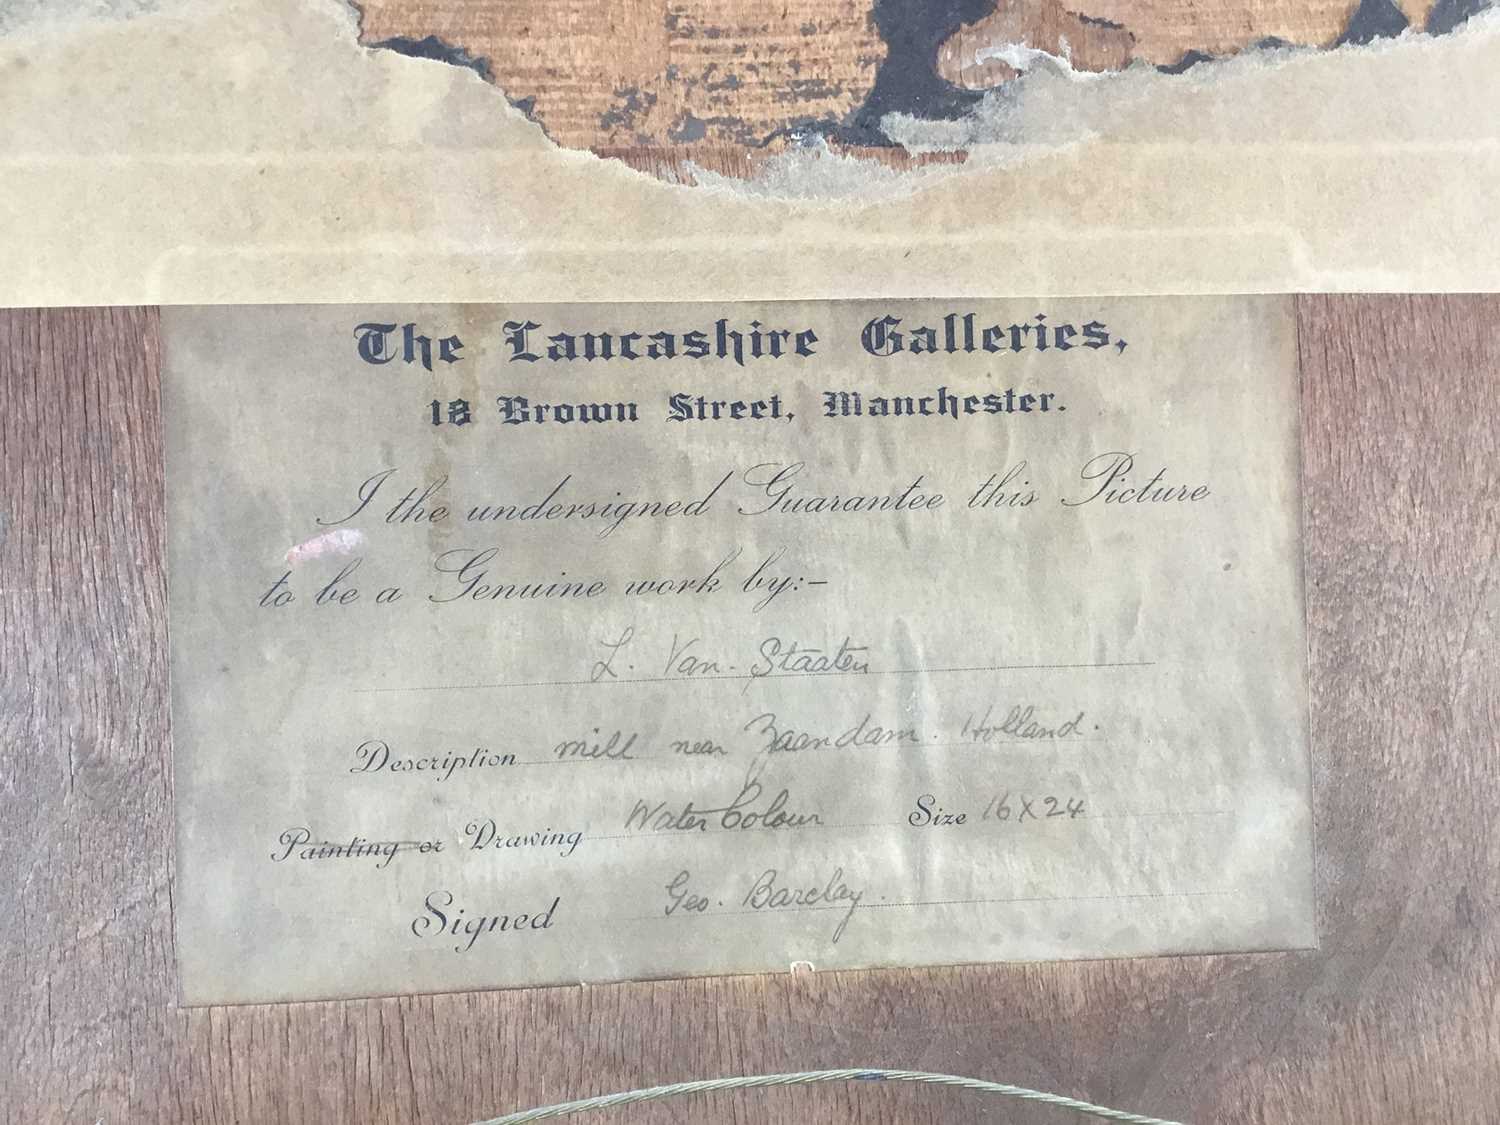 The Lancashire Galleries,
18 Brown Street, Manchester.
I the undersigned Guarantee this Picture
to be a Genuine work by:-
L. Van. Staaten
Description mill near Zaandam. Holland.
Painting or Drawing Water Colour Size 16 X 24
Signed Geo. Barclay.